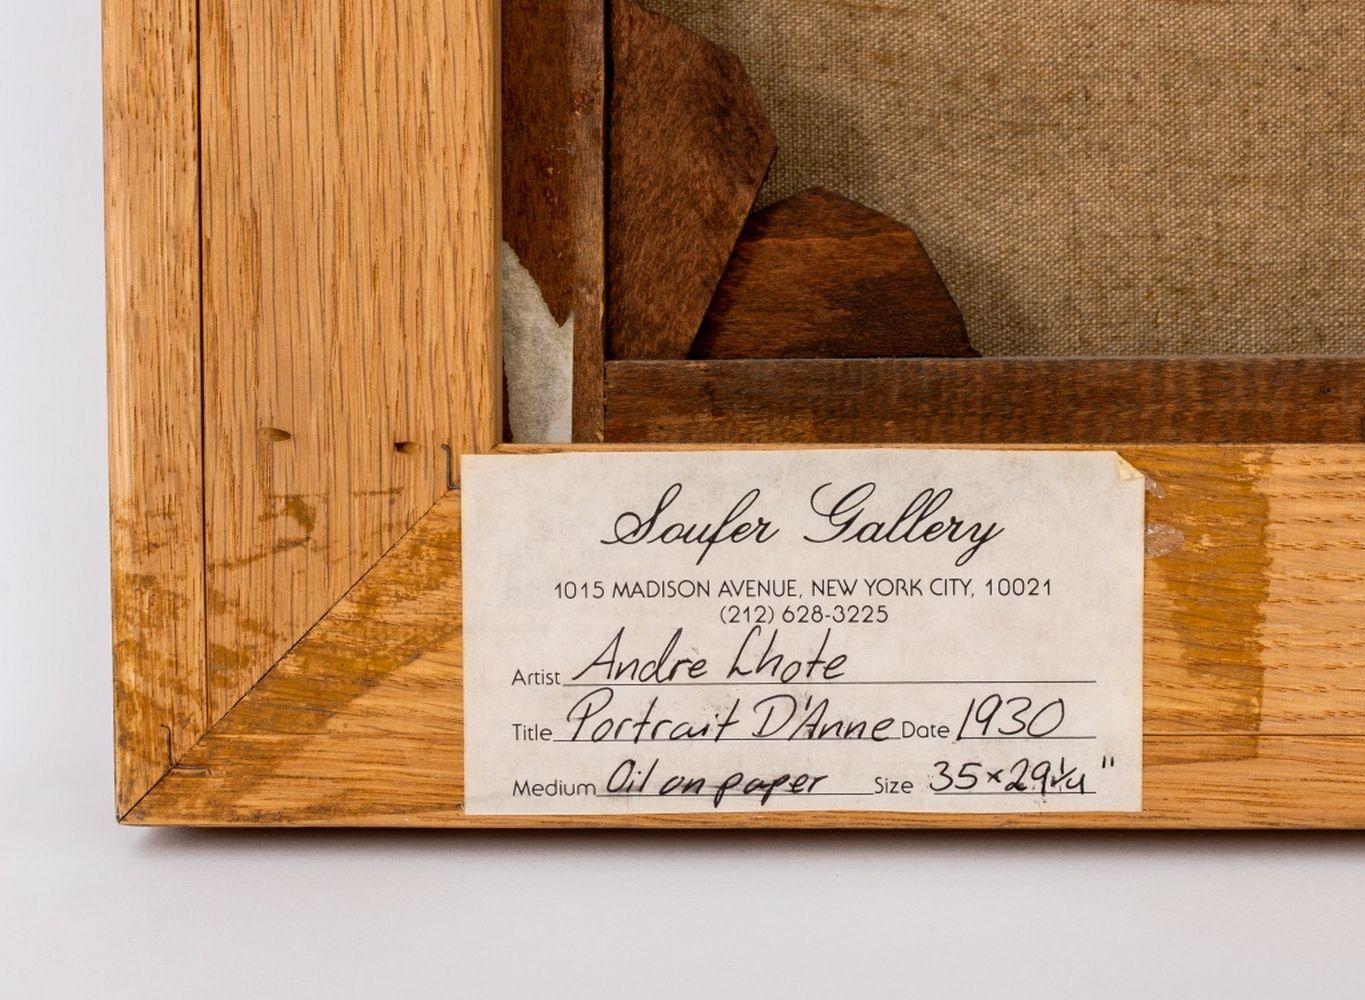 Soufer Gallery
1015 MADISON AVENUE, NEW YORK CITY, 10021
(212) 628-3225
Artist Andre Lhote
Title Portrait D'Anne Date 1930
Medium Oil on paper Size 35x29 1/4"